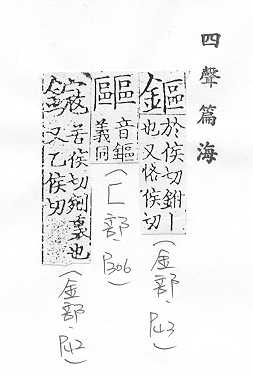 四聲篇海
鏂
於侯切鉜丨
也又恪侯切
(金部, P43)
音鏂
義同
(匚部, P306)
苦侯切剜裏也
又乙侯切
(金部, P42)